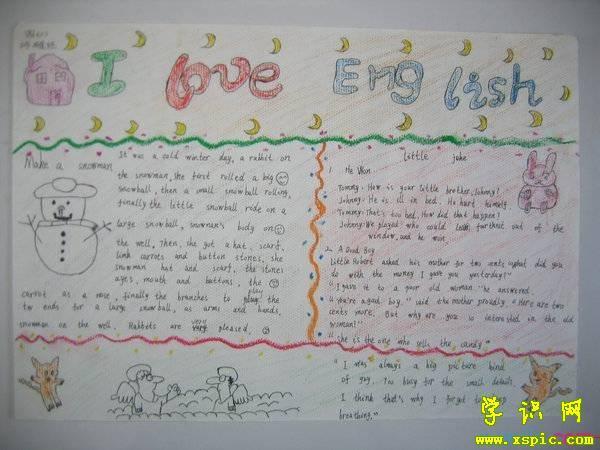 I love English
Make a snowman
It was a cold winter day, a rabbit on
the snowman, she first rolled a big
snowball, then a small snowball rolling,
finally the little snowball ride on a
large snowball, snowman's body on
the well, Then, she got a hat, scarf,
link carrots and button stones, she
snowman hat and scarf, the stones
eyes, mouth and buttons, the
carrot as a nose, finally the branches to play the
two ends for a large snowball, as arms and hands,
snowman on the well. Rabbits are very pleased.
little joke
1. He Won
Tommy: How is your little brother, Johnny?
Johnny: He is ill in bed. He hurt himself
Tommy: That's too bad. How did that happen?
Johnny: We played who could lean furthest out of the
window, and he won.
2. A Good Boy
Little Robert asked his mother for two cents. "What did you
do with the money I gave you yesterday?"
"I gave it to a poor old woman." he answered.
"You're a good boy," said the mother proudly. "Here are two
cents more. But why are you so interested in the old
woman?"
"She is the one who sells the candy."
"I was always a big picture kind
of guy. Too busy for the small details.
I think that's why I forget to keep
breathing."
学识网
www.xspic.com